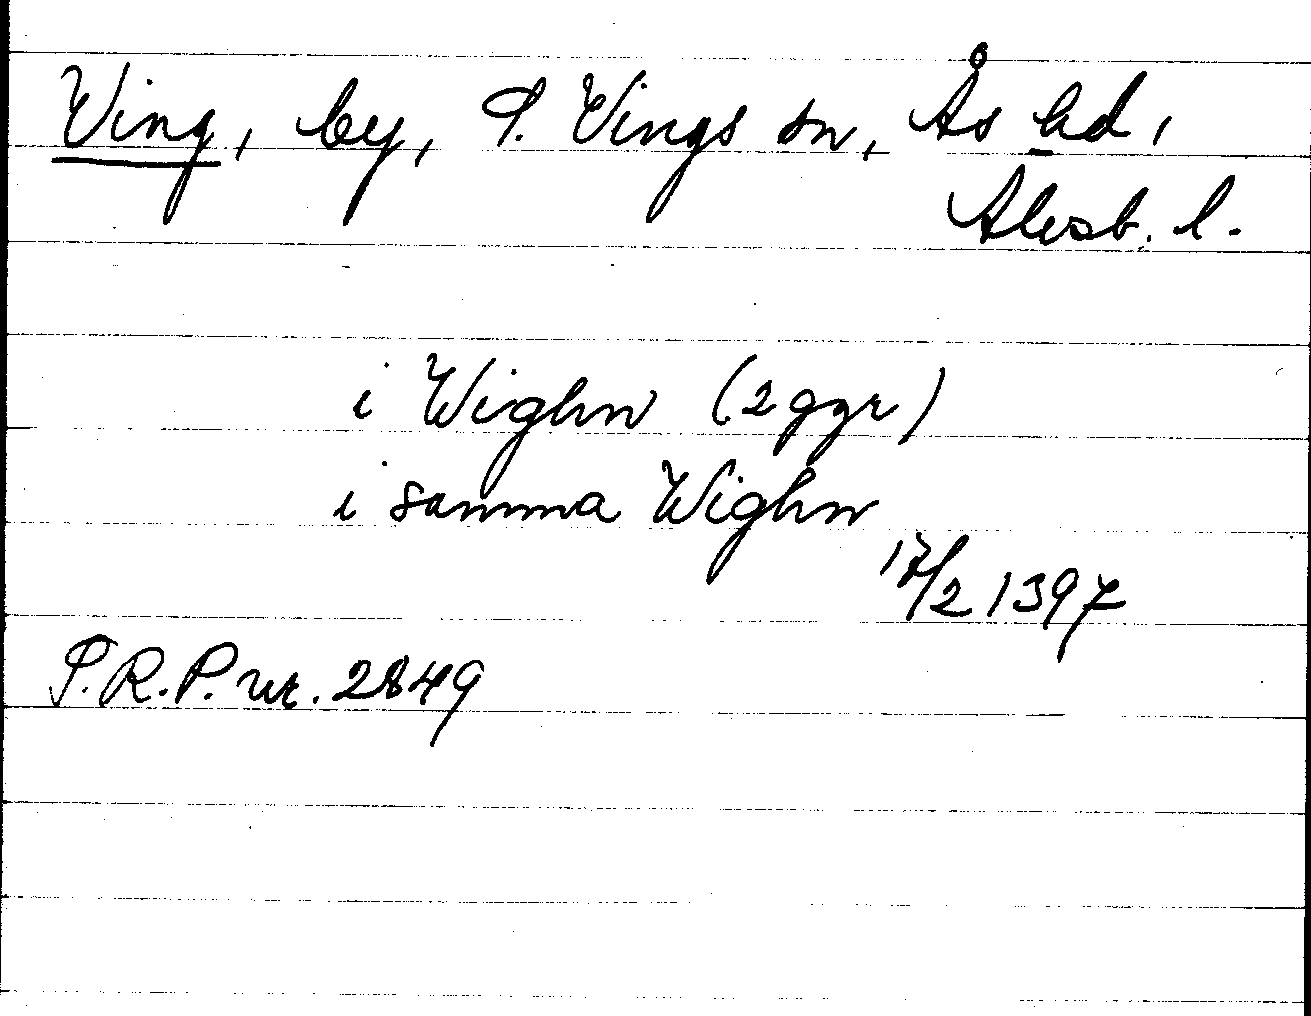 Ving, by, S. Vings sn, Ås hd,
Alvsb. l.
i Wighn (2 ggr)
i samma Wighn
17/2 1397
S.R.P. nr. 2849